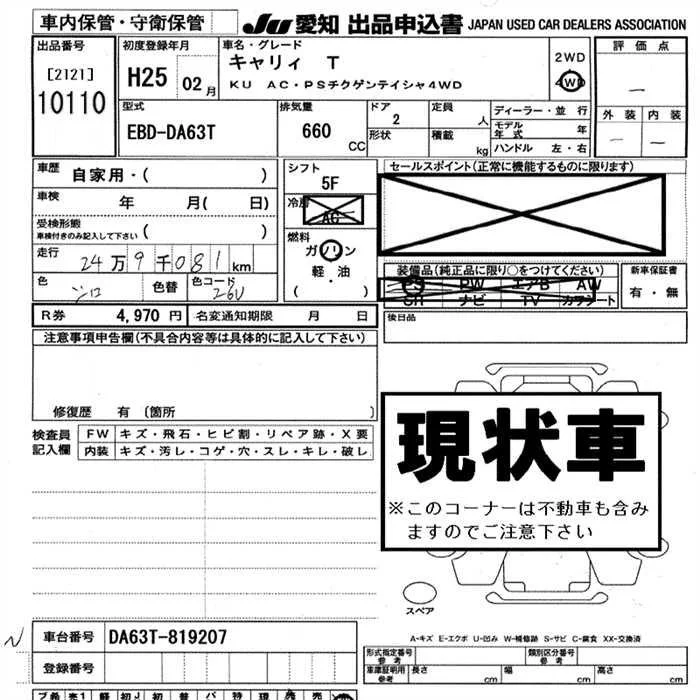 車内保管・守衛保管
JU 愛知 出品申込書 JAPAN USED CAR DEALERS ASSOCIATION
出品番号
[2121]
10110
初度登録年月
H25 02月
車名・グレード
キャリィ T
KU AC・PSチクゲンテイシャ4WD
2WD
4WD
評価点
外装 内装
型式
EBD-DA63T
排気量
660
CC
ドア
2
形状
定員
人
積載
kg
ディーラー・並行
モデル年式 年
ハンドル 左・右
車歴
自家用・( )
車検
年 月( 日)
受検形態
車検付きのみ記入して下さい ( )
走行
24万9千081km
色
色替
色コード
26U
シフト
5F
冷房
AC
燃料
ガソリン
軽・油
( )
セールスポイント(正常に機能するものに限ります)
装備品(純正品に限り○をつけてください)
PS PW エアB AW
SR ナビ TV カワシート
新車保証書
有・無
R券 4,970円 名変通知期限 月 日
後日品
注意事項申告欄(不具合内容等は具体的に記入して下さい)
修復歴 有 〔箇所 〕
検査員
記入欄
FW キズ・飛石・ヒビ割・リペア跡・X要
内装 キズ・汚レ・コゲ・穴・スレ・キレ・破レ
現状車
※このコーナーは不動車も含み
ますのでご注意下さい
スペア
A-キズ E-エクボ U-凹み W-補修跡 S-サビ C-腐食 XX-交換済
N
車台番号 DA63T-819207
登録番号
形式指定番号
参考
類別区分番号
参考
車庫証明用
参考
長さ cm 幅 cm 高さ cm